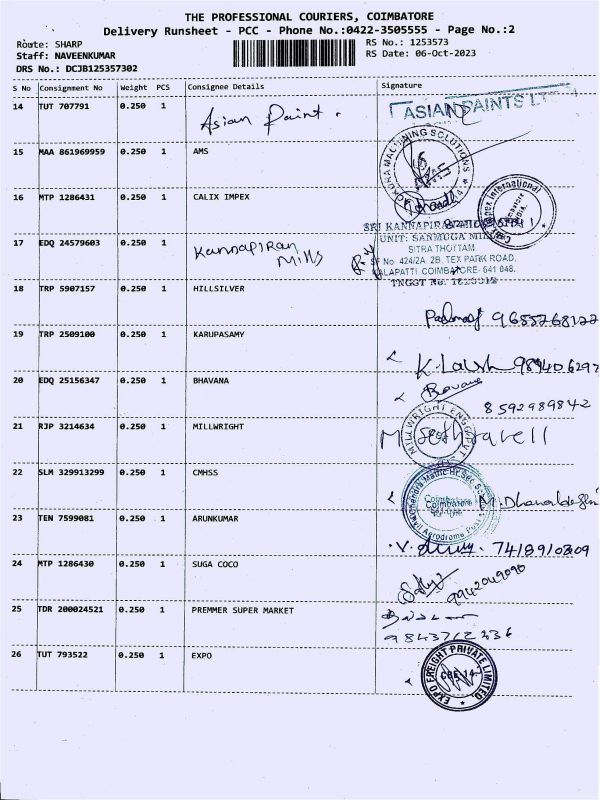 THE PROFESSIONAL COURIERS, COIMBATORE
Delivery Runsheet - PCC - Phone No.:0422-3505555 - Page No.:2
Route: SHARP
RS No.: 1253573
Staff: NAVEENKUMAR
RS Date: 06-Oct-2023
DRS No.: DCJB125357302
S No Consignment No Weight PCS Consignee Details Signature
14 TUT 707791 0.250 1 Asian Paint. ASIAN PAINTS
15 MAA 861969959 0.250 1 AMS
MACHINING SOLUTIONS
16 MTP 1286431 0.250 1 CALIX IMPEX
International
SRI KANNAPIRAN
17 EDQ 24579603 0.250 1 Kannapiran Mills
UNIT: SANMUGA
SITRA THOTTAM
SF No. 424/2A, 2B, TEX PARK ROAD,
KALAPATTI COIMBATORE- 641 048.
TNGST No.
18 TRP 5907157 0.250 1 HILLSILVER
9655768122
19 TRP 2509100 0.250 1 KARUPASAMY
20 EDQ 25156347 0.250 1 BHAVANA Bavana
8592989842
21 RJP 3214634 0.250 1 MILLWRIGHT
MILLWRIGHT ENGG
22 SLM 329913299 0.250 1 CMHSS
Coimbatore
Aerodrome Post
23 TEN 7599081 0.250 1 ARUNKUMAR
24 MTP 1286430 0.250 1 SUGA COCO
9942049090
25 TDR 200024521 0.250 1 PREMMER SUPER MARKET
26 TUT 793522 0.250 1 EXPO
EXPO FREIGHT PRIVATE LIMITED
CBE-14